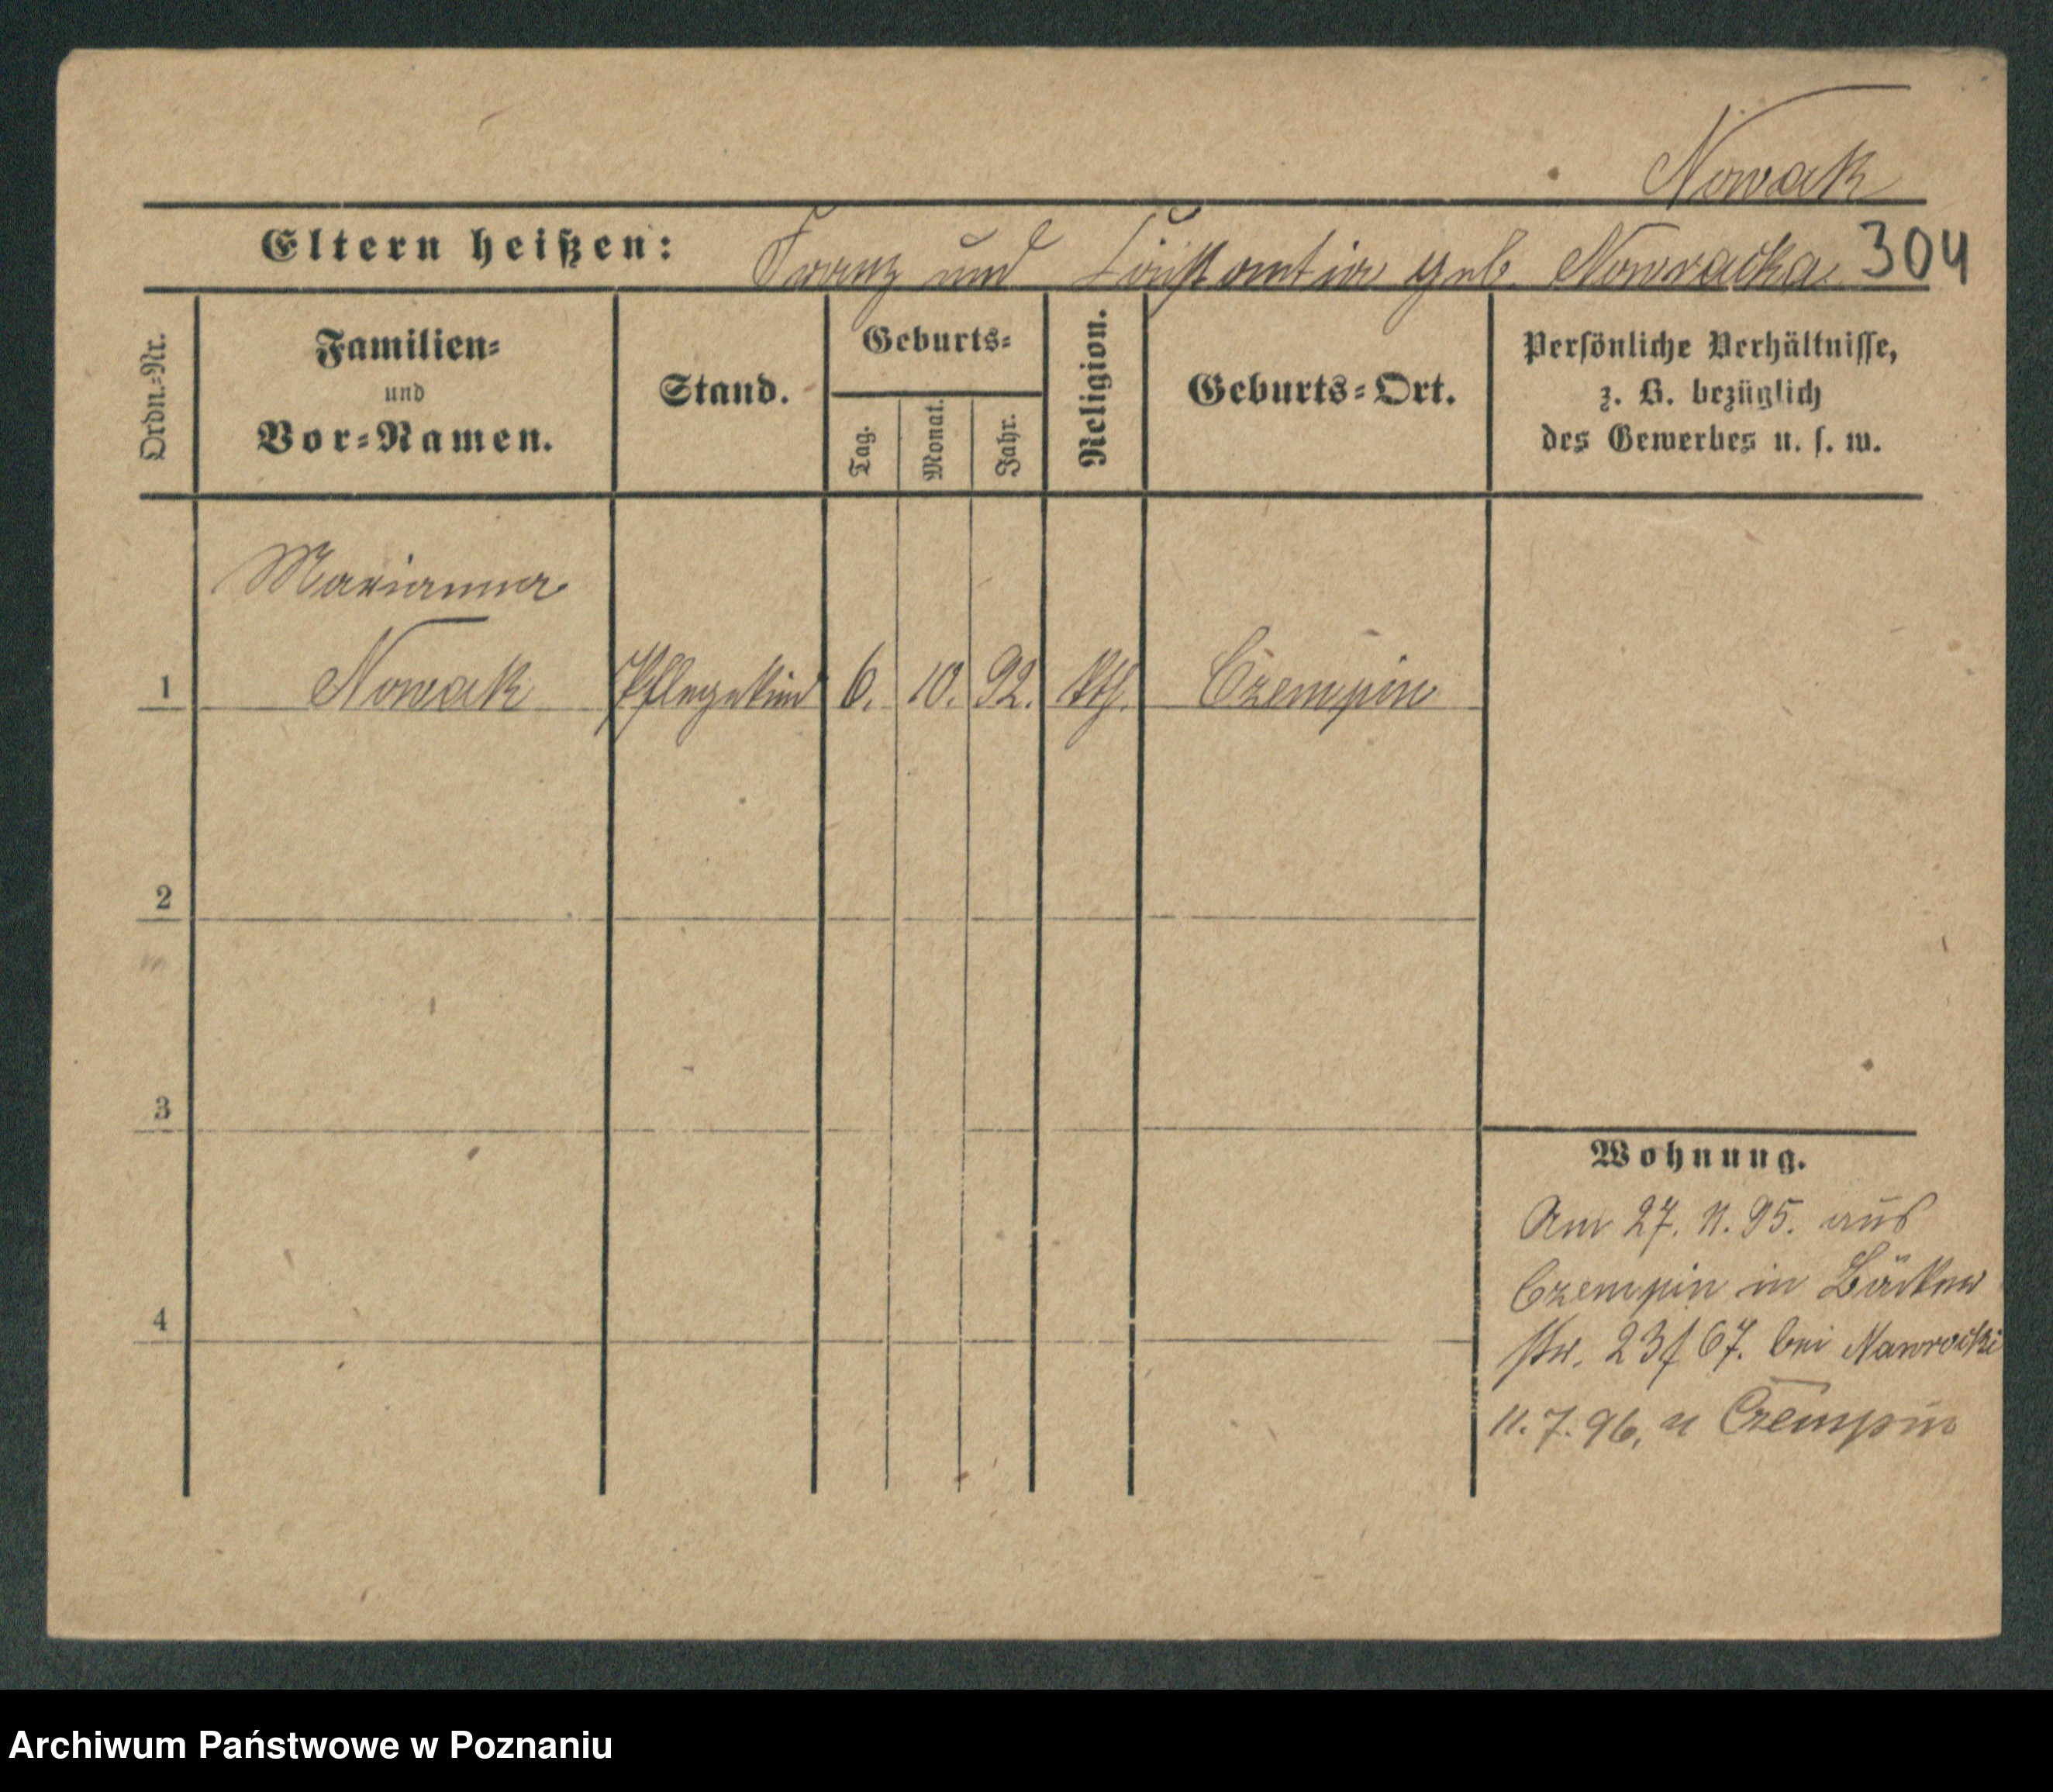 Nowak
Eltern heißen: Franz und Constantia geb. Nawracka 304
Ordn.-Nr.
Familien-
und
Vor-Namen.
Stand.
Geburts-
Tag.
Monat.
Jahr.
Religion.
Geburts-Ort.
Persönliche Verhältnisse,
z. B. bezüglich
des Gewerbes u. s. w.
Marianna
1 Nowak Pflegekind 6. 10. 92. kth. Czempin
2
3
4
Wohnung.
Am 27. 11. 95. aus
Czempin in Bäcker
str. 23 67. bei Nawrocki
11. 7. 96, n Czempin
Archiwum Państwowe w Poznaniu